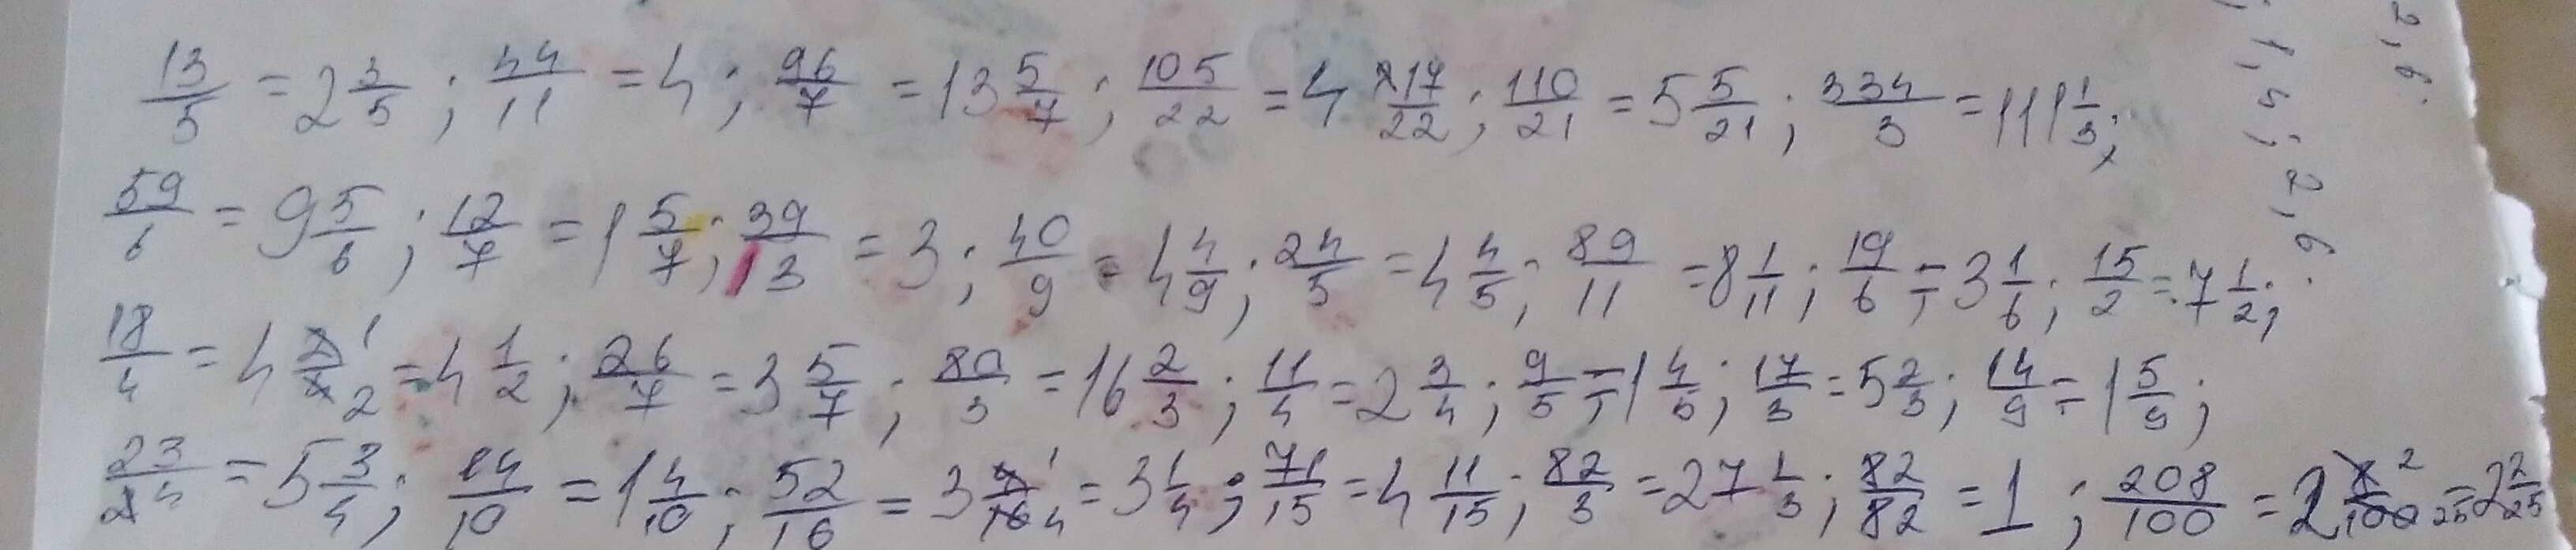 13/5 = 2 3/5 ; 44/11 = 4 ; 96/7 = 13 5/7 ; 105/22 = 4 17/22 ; 110/21 = 5 5/21 ; 334/3 = 111 1/3 ;
59/6 = 9 5/6 ; 12/7 = 1 5/7 ; 39/13 = 3 ; 40/9 = 4 4/9 ; 24/5 = 4 4/5 ; 89/11 = 8 1/11 ; 19/6 = 3 1/6 ; 15/2 = 7 1/2 ;
18/4 = 4 2/4 1 2 = 4 1/2 ; 26/7 = 3 5/7 ; 80/3 = 16 2/3 ; 11/4 = 2 3/4 ; 9/5 = 1 4/5 ; 17/3 = 5 2/3 ; 14/9 = 1 5/9 ;
23/4 = 5 3/4 ; 14/10 = 1 4/10 ; 52/16 = 3 4/16 1 4 = 3 1/4 ; 71/15 = 4 11/15 ; 82/3 = 27 1/3 ; 82/82 = 1 ; 208/100 = 2 8/100 2 25 = 2 2/25
1,5 ; 2,6 .
2,6 .